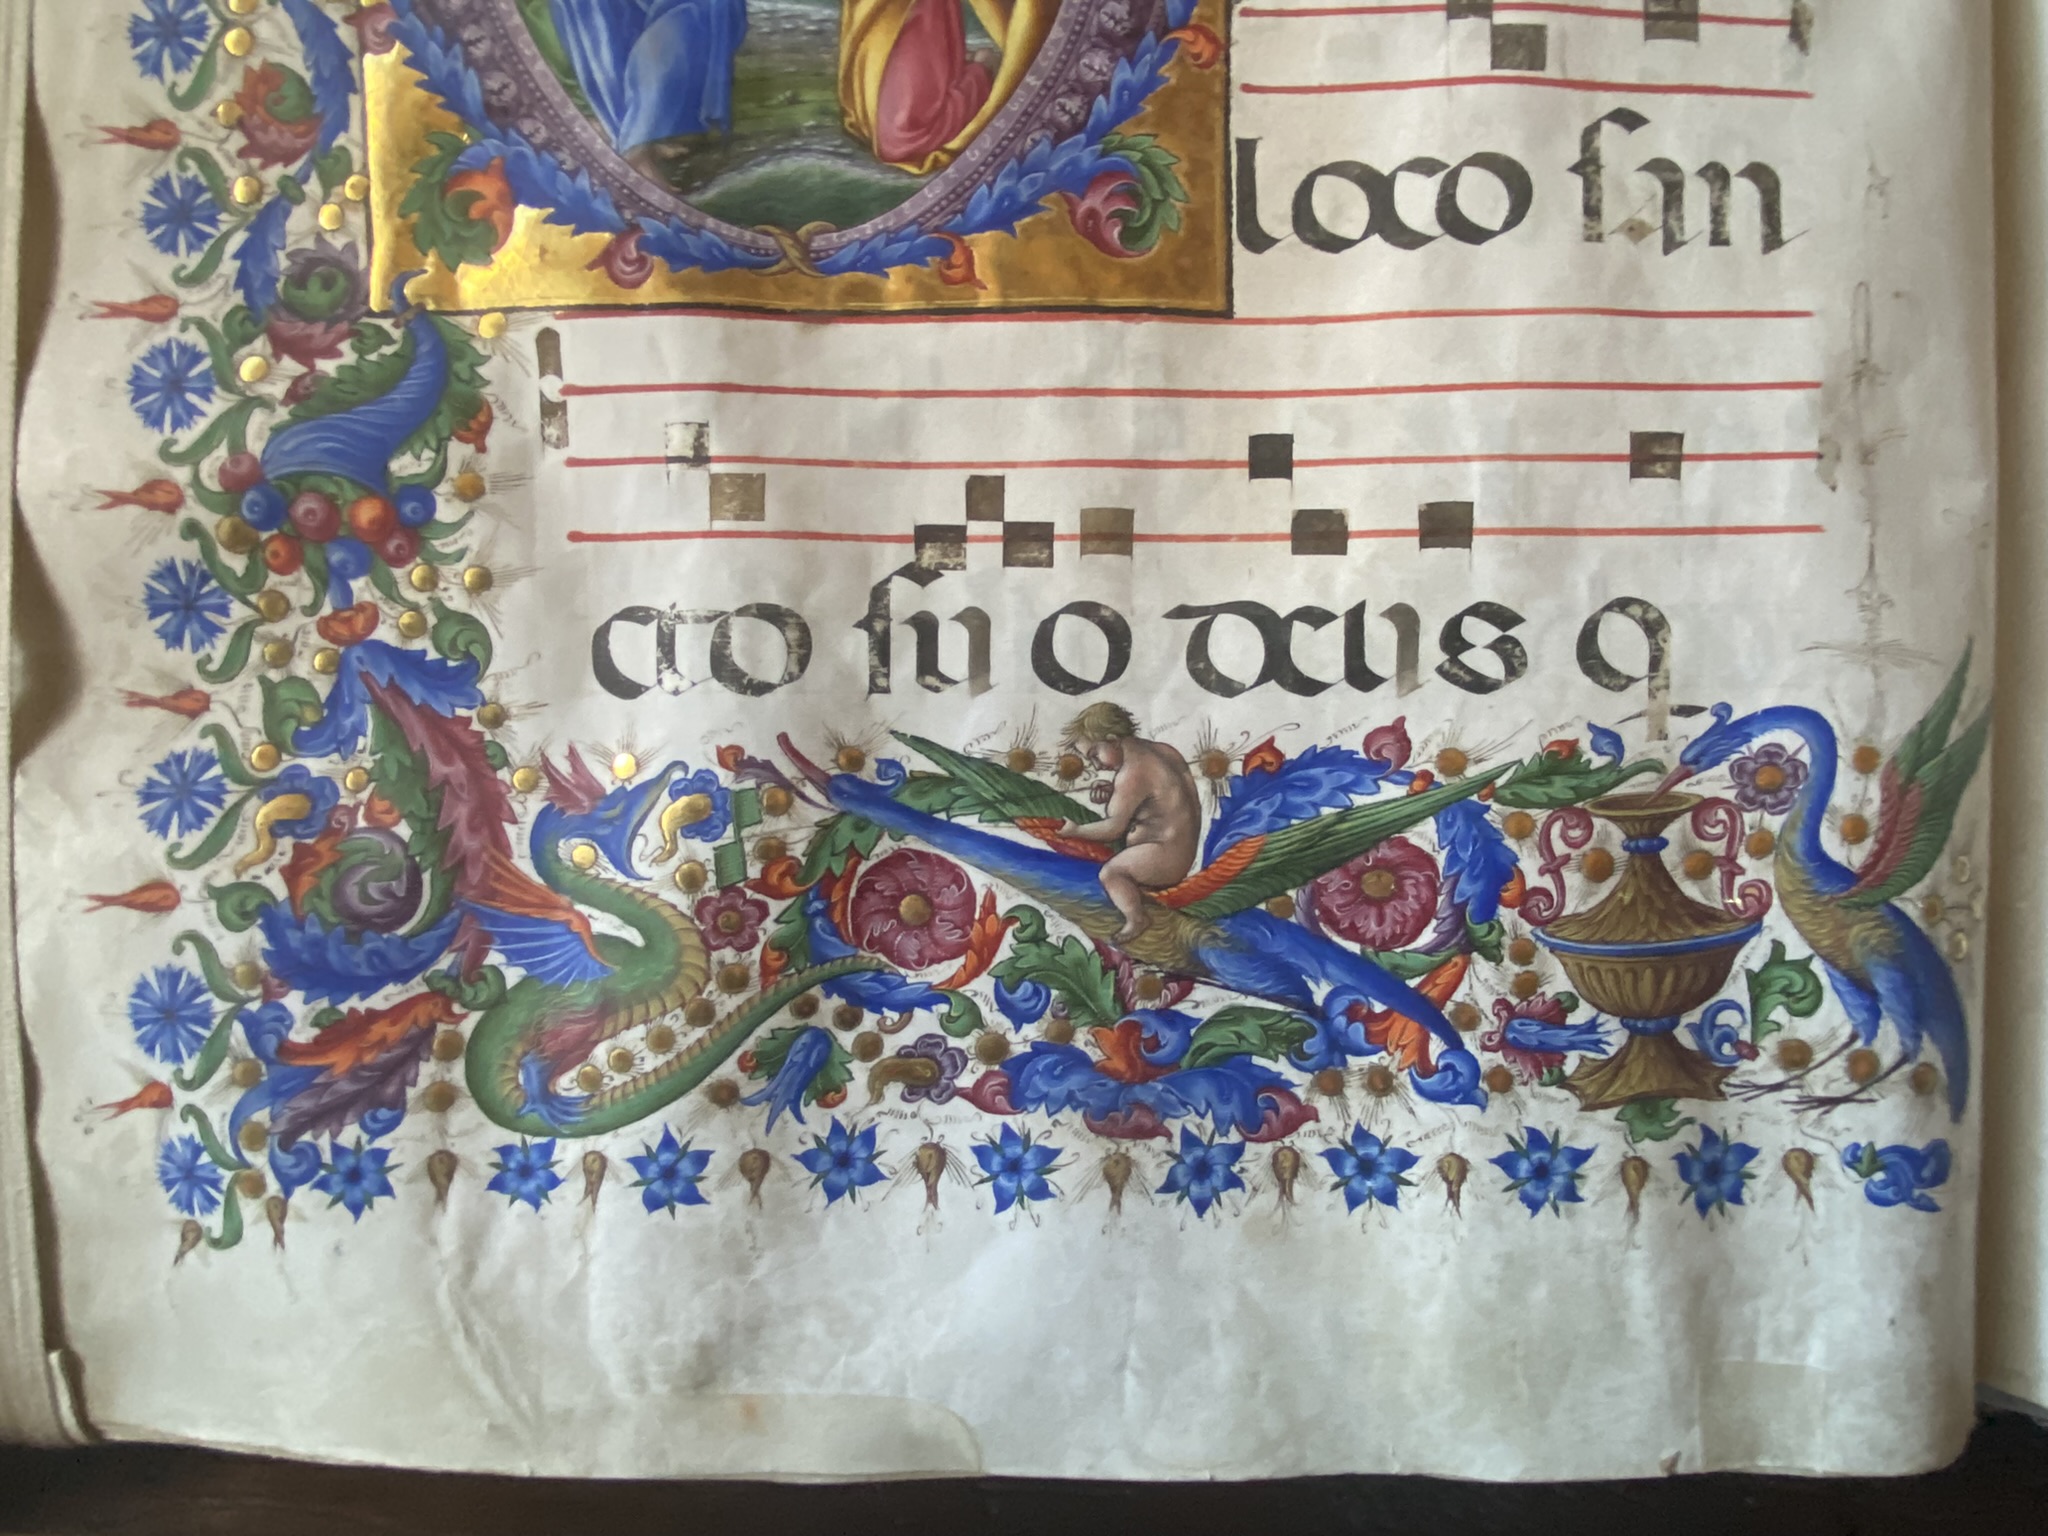 loco san
cto suo deus q